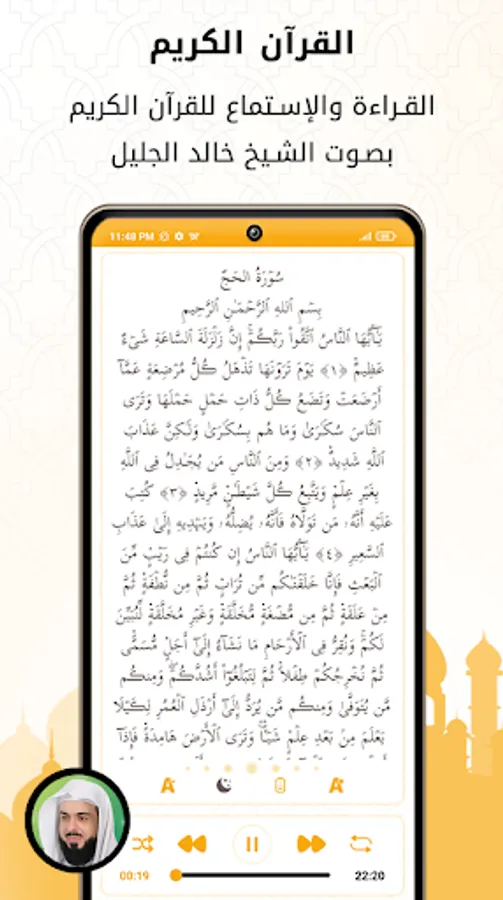 القرآن الكريم
القراءة والإستماع للقرآن الكريم
بصوت الشيخ خالد الجليل
11:48 PM
سُورَةُ الحَجِّ
بِسْمِ ٱللهِ ٱلرَّحْمَـٰنِ ٱلرَّحِيمِ
يَـٰٓأَيُّهَا ٱلنَّاسُ ٱتَّقُوا۟ رَبَّكُمْ ۚ إِنَّ زَلْزَلَةَ ٱلسَّاعَةِ شَىْءٌ
عَظِيمٌ ﴿١﴾ يَوْمَ تَرَوْنَهَا تَذْهَلُ كُلُّ مُرْضِعَةٍ عَمَّآ
أَرْضَعَتْ وَتَضَعُ كُلُّ ذَاتِ حَمْلٍ حَمْلَهَا وَتَرَى
ٱلنَّاسَ سُكَـٰرَىٰ وَمَا هُم بِسُكَـٰرَىٰ وَلَـٰكِنَّ عَذَابَ
ٱللَّهِ شَدِيدٌ ﴿٢﴾ وَمِنَ ٱلنَّاسِ مَن يُجَـٰدِلُ فِى ٱللَّهِ
بِغَيْرِ عِلْمٍ وَيَتَّبِعُ كُلَّ شَيْطَـٰنٍ مَّرِيدٍ ﴿٣﴾ كُتِبَ
عَلَيْهِ أَنَّهُۥ مَن تَوَلَّاهُ فَأَنَّهُۥ يُضِلُّهُۥ وَيَهْدِيهِ إِلَىٰ عَذَابِ
ٱلسَّعِيرِ ﴿٤﴾ يَـٰٓأَيُّهَا ٱلنَّاسُ إِن كُنتُمْ فِى رَيْبٍ مِّنَ
ٱلْبَعْثِ فَإِنَّا خَلَقْنَـٰكُم مِّن تُرَابٍ ثُمَّ مِن نُّطْفَةٍ ثُمَّ
مِنْ عَلَقَةٍ ثُمَّ مِن مُّضْغَةٍ مُّخَلَّقَةٍ وَغَيْرِ مُخَلَّقَةٍ لِّنُبَيِّنَ
لَكُمْ ۚ وَنُقِرُّ فِى ٱلْأَرْحَامِ مَا نَشَآءُ إِلَىٰٓ أَجَلٍ مُّسَمًّى
ثُمَّ نُخْرِجُكُمْ طِفْلًا ثُمَّ لِتَبْلُغُوٓا۟ أَشُدَّكُمْ ۖ وَمِنكُم
مَّن يُتَوَفَّىٰ وَمِنكُم مَّن يُرَدُّ إِلَىٰٓ أَرْذَلِ ٱلْعُمُرِ لِكَيْلَا
يَعْلَمَ مِنۢ بَعْدِ عِلْمٍ شَيْـًٔا ۚ وَتَرَى ٱلْأَرْضَ هَامِدَةً فَإِذَآ
00:19
22:20